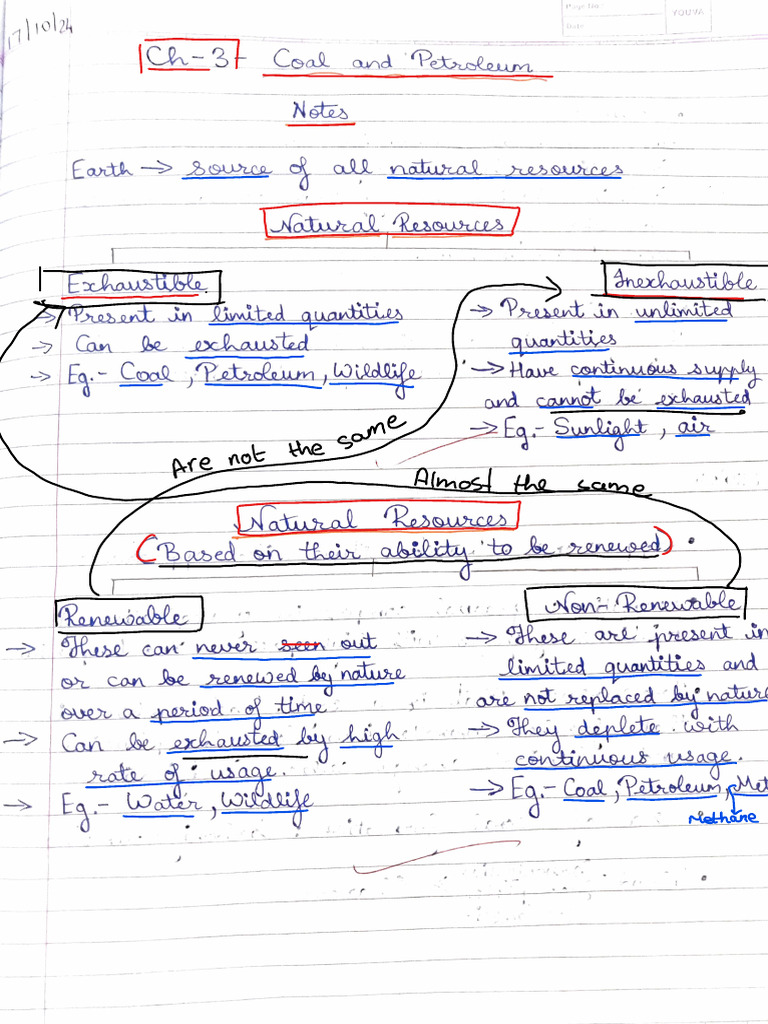 17/10/24
Page No.
Date
YOUVA
Ch-3- Coal and Petroleum
Notes
Earth → source of all natural resources
Natural Resources
Exhaustible
→ Present in limited quantities
→ Can be exhausted
→ Eg.- Coal, Petroleum, Wildlife
Inexhaustible
→ Present in unlimited
quantities
→ Have continuous supply
and cannot be exhausted
→ Eg.- Sunlight, air
Are not the same
Almost the same
Natural Resources
(Based on their ability to be renewed)
Renewable
→ These can never seen out
or can be renewed by nature
over a period of time
→ Can be exhausted by high
rate of usage.
→ Eg.- Water, Wildlife
Non-Renewable
→ These are present in
limited quantities and
are not replaced by nature
→ They deplete with
continuous usage.
→ Eg.- Coal, Petroleum, Met
Methane